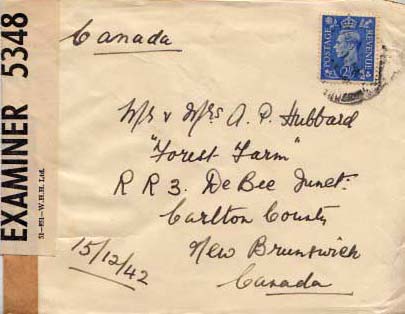 Canada
POSTAGE
REVENUE
2½
Mr & Mrs A. P. Hubbard
"Forest Farm"
R R 3. De Bec Junct.
Carlton County
New Brunswick
Canada
15/12/42
EXAMINER 5348
51-891—W.H.H. Ltd.